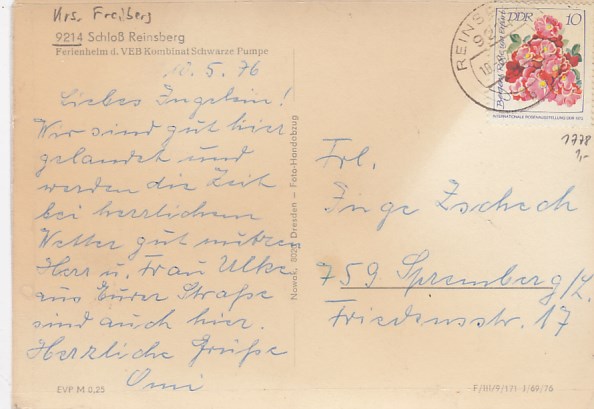 Krs. Freiberg
9214 Schloß Reinsberg
Ferienheim d. VEB Kombinat Schwarze Pumpe
10.5.76
Liebes Ingelein!
Wir sind gut hier
gelandet und
werden die Zeit
bei herrlichem
Wetter gut nutzen
Herr u. Frau Ulke
aus Eurer Straße
sind auch hier.
Herzliche Grüße
Omi
EVP M 0,25
Nowak, 8020 Dresden – Foto-Handabzug
REINSB
DDR 10
INTERNATIONALE ROSENAUSSTELLUNG DDR 1972
1778
1,-
Frl.
Inge Zschech
759 Spremberg/L.
Friedensstr. 17
F/III/9/171 1/69/76